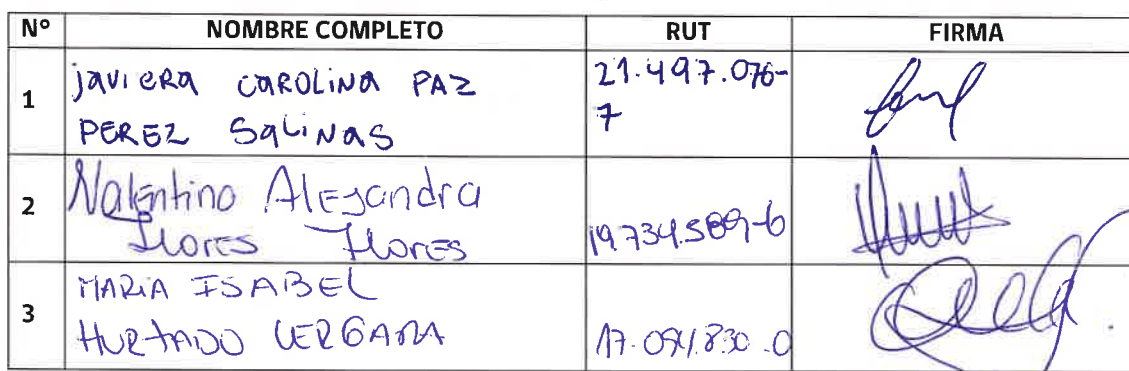 Nº NOMBRE COMPLETO RUT FIRMA
1 javiera CAROLINA PAZ 21.497.076-
PEREZ SALINAS 7
2 Valentina Alejandra
Flores Flores 19.734.589-6
3 MARIA ISABEL
HURTADO VERGARA 17.054.830-0